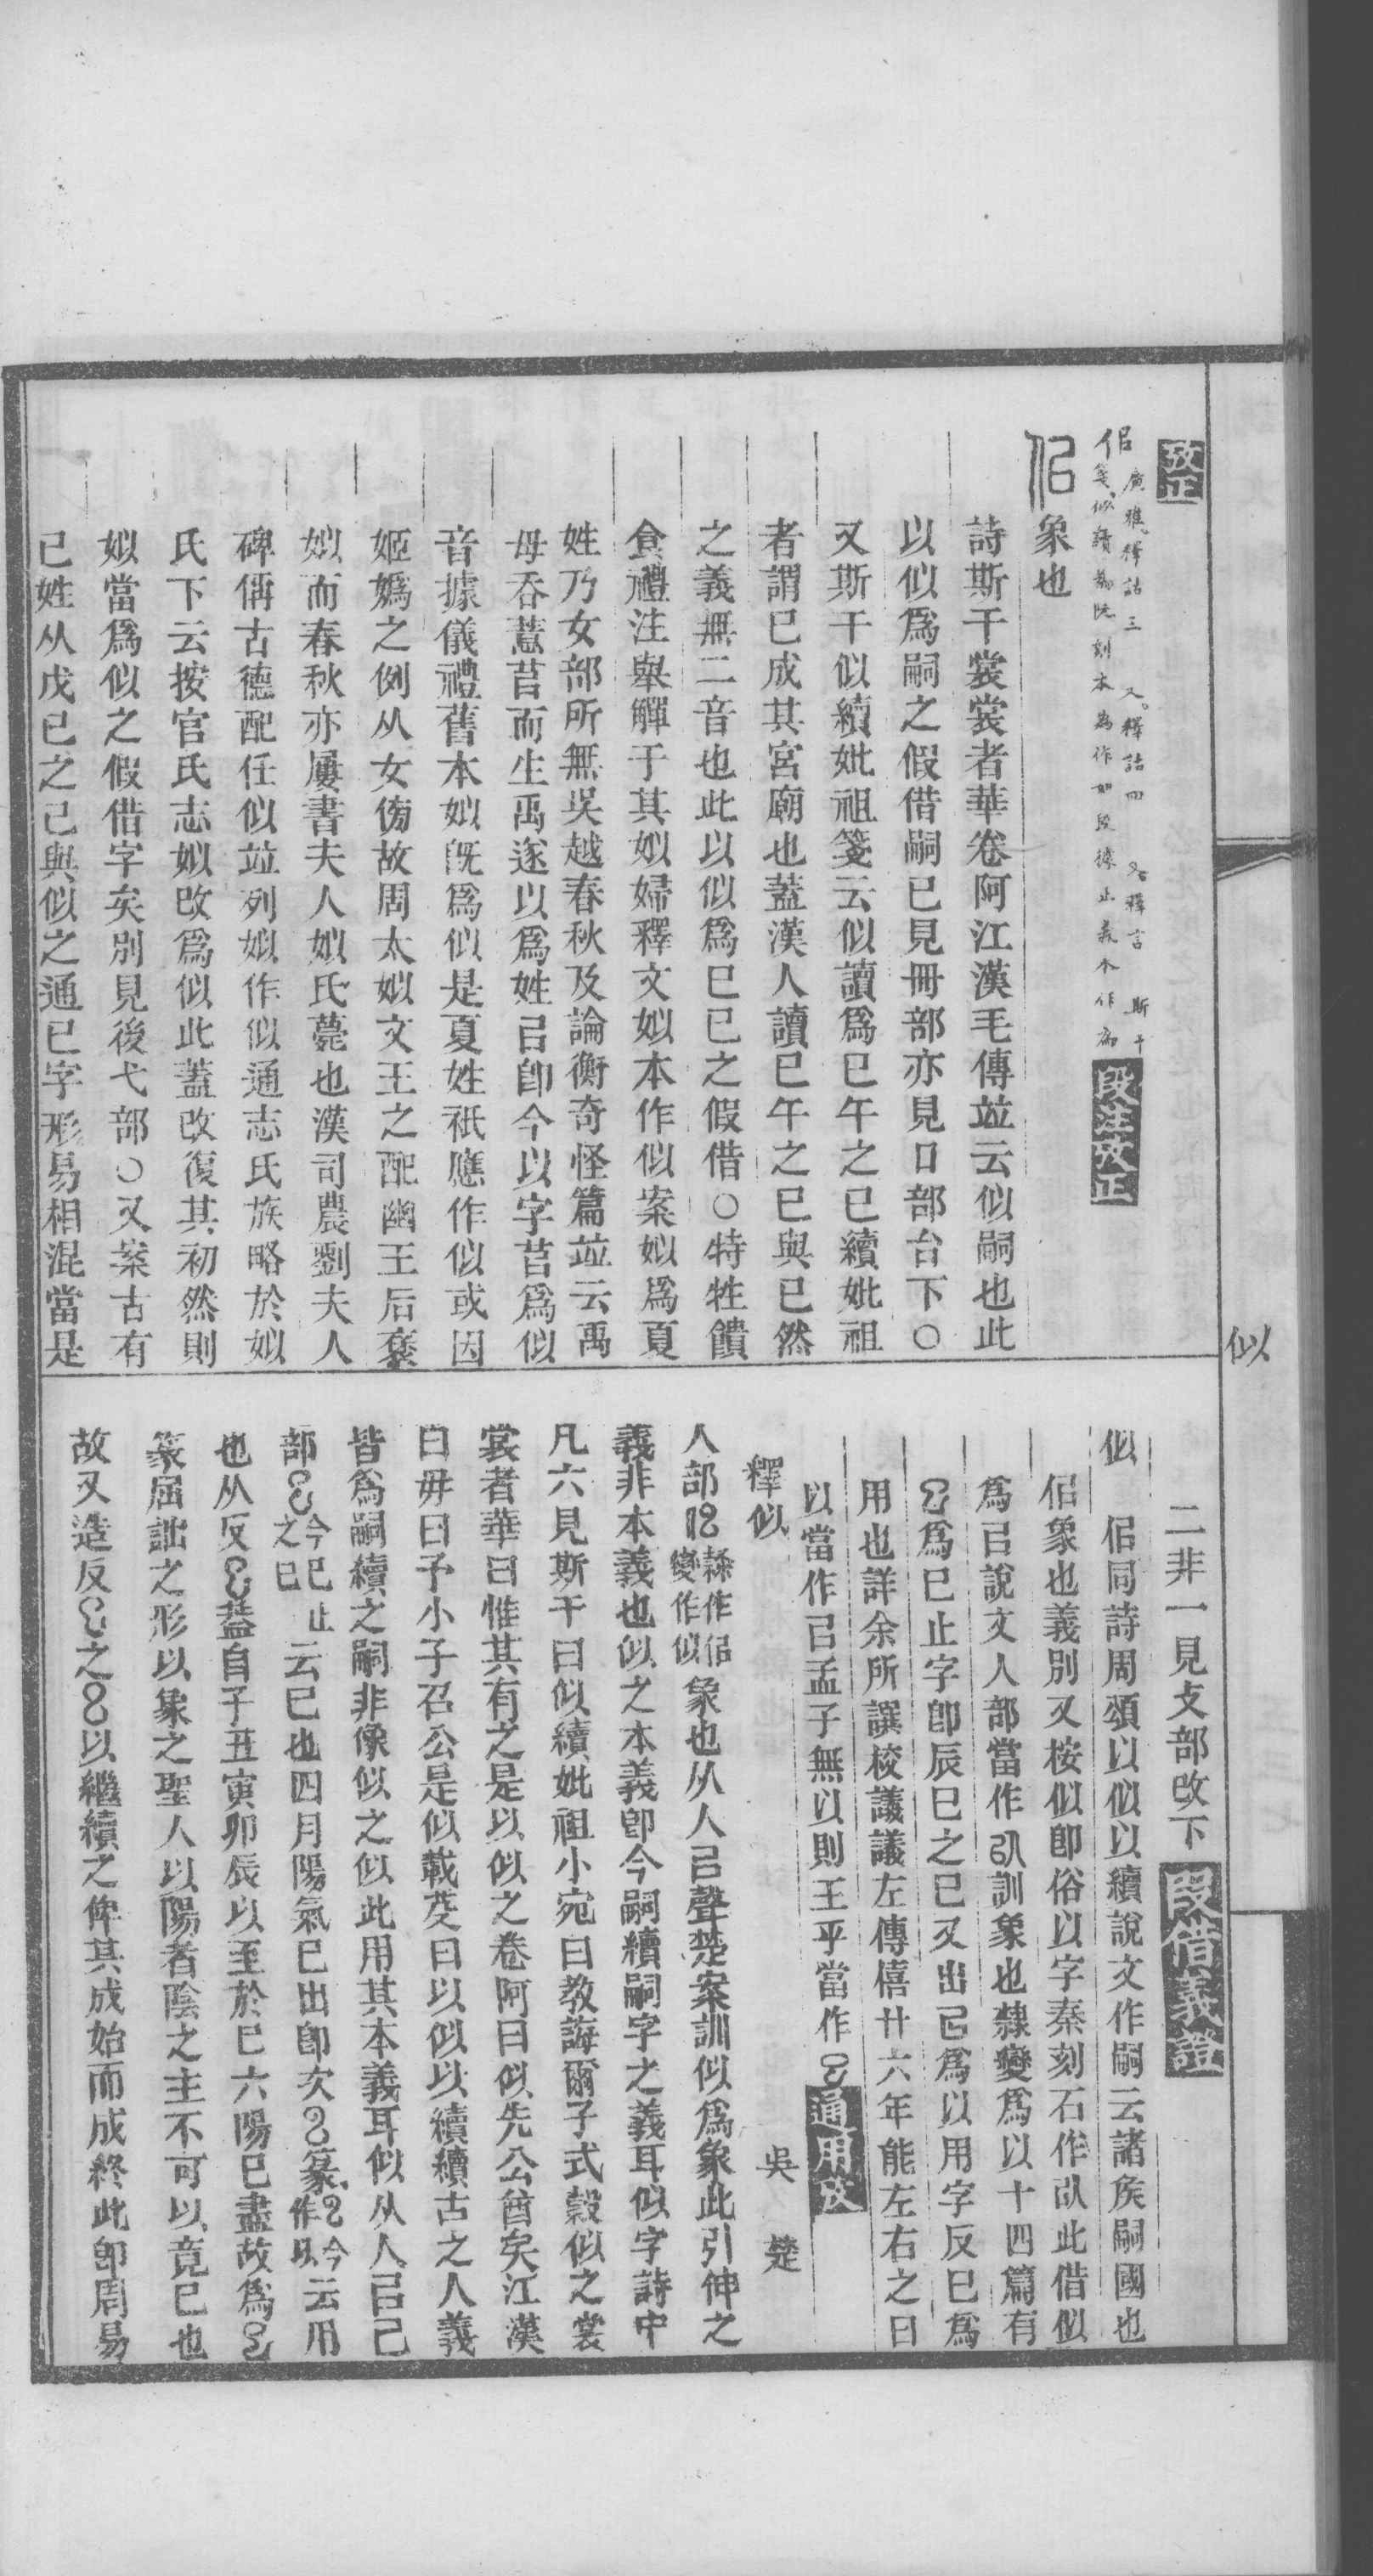 似
攷正
佀 廣雅釋詁三 又釋詁四 又釋言 斯干
箋似讀為阮刻本為作如段據正義本作為 段注攷正
佀象也
詩斯干裳裳者華卷阿江漢毛傳竝云似嗣也此
以似爲嗣之假借嗣巳見冊部亦見口部台下○
又斯干似續妣祖箋云似讀爲巳午之巳續妣祖
者謂巳成其宮廟也蓋漢人讀巳午之巳與已然
之義無二音也此以似爲巳已之假借○特牲饋
食禮注舉觶于其姒婦釋文姒本作似案姒爲夏
姓乃女部所無吳越春秋及論衡奇怪篇竝云禹
母吞薏苢而生禹遂以爲姓㠯卽今以字苢爲似
音據儀禮舊本姒旣爲似是夏姓祇應作似或因
姬嬀之例从女傍故周太姒文王之配幽王后褒
姒而春秋亦屢書夫人姒氏薨也漢司農劉夫人
碑偁古德配任似竝列姒作似通志氏族略於姒
氏下云按官氏志姒改爲似此蓋改復其初然則
姒當爲似之假借字矣別見後弋部○又案古有
已姓从戊己之己與似之通已字形易相混當是
二非一見攴部改下 段借義證
似 佀同詩周頌以似以續說文作嗣云諸矦嗣國也
佀象也義別又按似卽俗以字秦刻石作㕥此借似
爲㠯說文人部當作㕥訓象也隸變爲以十四篇有
𢀳爲巳止字卽辰巳之巳又出㠯爲以用字反巳爲
用也詳余所譔校議議左傳僖廿六年能左右之曰
以當作㠯孟子無以則王乎當作𢀳 通用攷
釋似 吳 楚
人部佀隸作佀變作似象也从人㠯聲楚案訓似爲象此引伸之
義非本義也似之本義卽今嗣續嗣字之義耳似字詩中
凡六見斯干曰似續妣祖小宛曰教誨爾子式穀似之裳
裳者華曰惟其有之是以似之卷阿曰似先公酋矣江漢
曰毋曰予小子召公是似載芟曰以似以續續古之人義
皆爲嗣續之嗣非像似之似此用其本義耳似从人㠯己
部𢀳今巳止之巳云巳也四月陽氣巳出卽次㠯篆㠯今作以云用
也从反𢀳蓋自子丑寅卯辰以至於巳六陽巳盡故爲𢀳
篆屈詘之形以象之聖人以陽者陰之主不可以竟巳也
故又造反𢀳之㠯以繼續之俾其成始而成終此卽周易